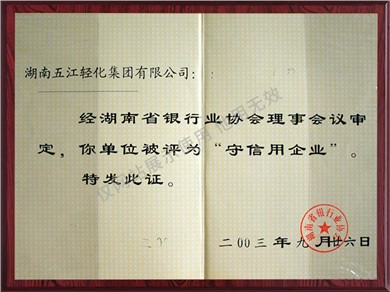 湖南五江轻化集团有限公司：
经湖南省银行业协会理事会议审
定，你单位被评为“守信用企业”。
特发此证。
二00三年九月廿六日
湖南省银行业协会
仅网站展示使用 他用无效